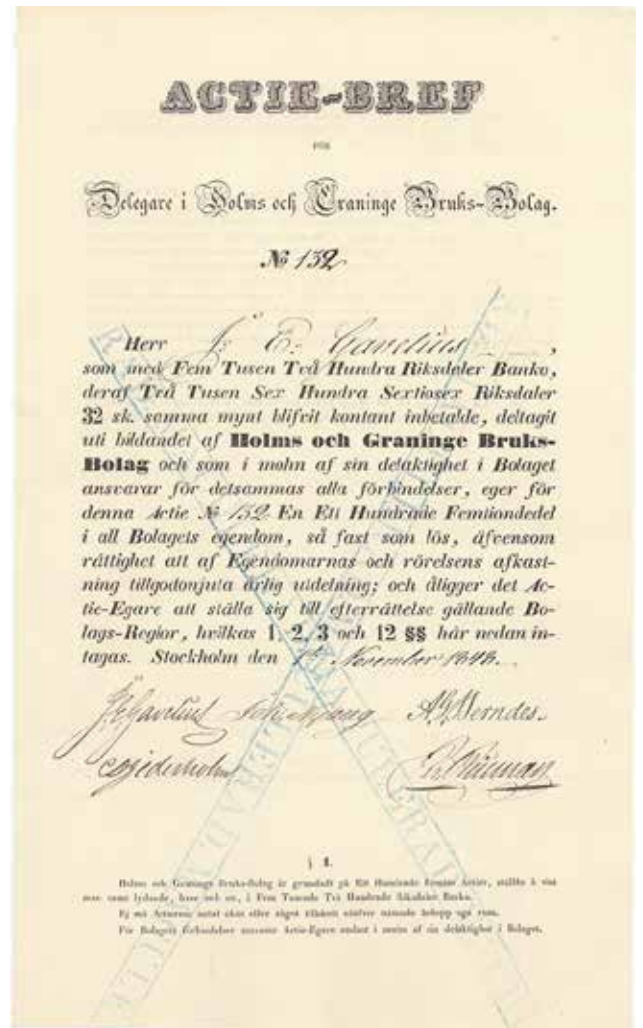 ACTIE-BREF
FÖR
Delegare i Holms och Graninge Bruks-Bolag.
№ 132
Herr J. E. Gavelius,
som med Fem Tusen Två Hundra Riksdaler Banko,
deraf Två Tusen Sex Hundra Sextiosex Riksdaler
32 sk. samma mynt blifvit kontant inbetalde, deltagit
uti bildandet af Holms och Graninge Bruks-
Bolag och som i mohn af sin delaktighet i Bolaget
ansvarar för detsammas alla förbindelser, eger för
denna Actie № 132 En Ett Hundrade Femtiondedel
i all Bolagets egendom, så fast som lös, äfvensom
rättighet att af Egendomarnas och rörelsens afkast-
ning tillgodonjuta årlig utdelning; och åligger det Ac-
tie-Egare att ställa sig till efterrättelse gällande Bo-
lags-Reglor, hvilkas 1, 2, 3 och 12 §§ här nedan in-
tagas. Stockholm den 1 November 1848.
J E Gavelius
§ 1.
Holms och Graninge Bruks-Bolag är grundadt på Ett Hundrade Femtio Actier, ställde å viss
man samt lydande, hvar och en, å Fem Tusende Två Hundrade Riksdaler Banko.
Ej må Actiernas antal ökas eller något tillskott utöfver nämnde belopp ega rum.
För Bolagets förbindelser ansvarar Actie-Egare endast i mohn af sin delaktighet i Bolaget.
MAKULERAD